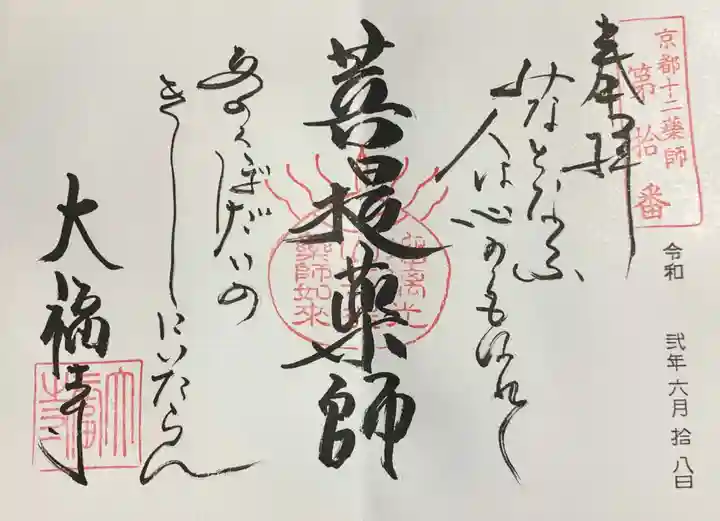 京都十二薬師
第拾番
奉拝
令和 弐年 六月 拾八日
みなとなふ
人は心のくもはれて
菩提薬師
瑠璃光
藥師如來
あのくぼだいの
きしにいたらん
大福寺